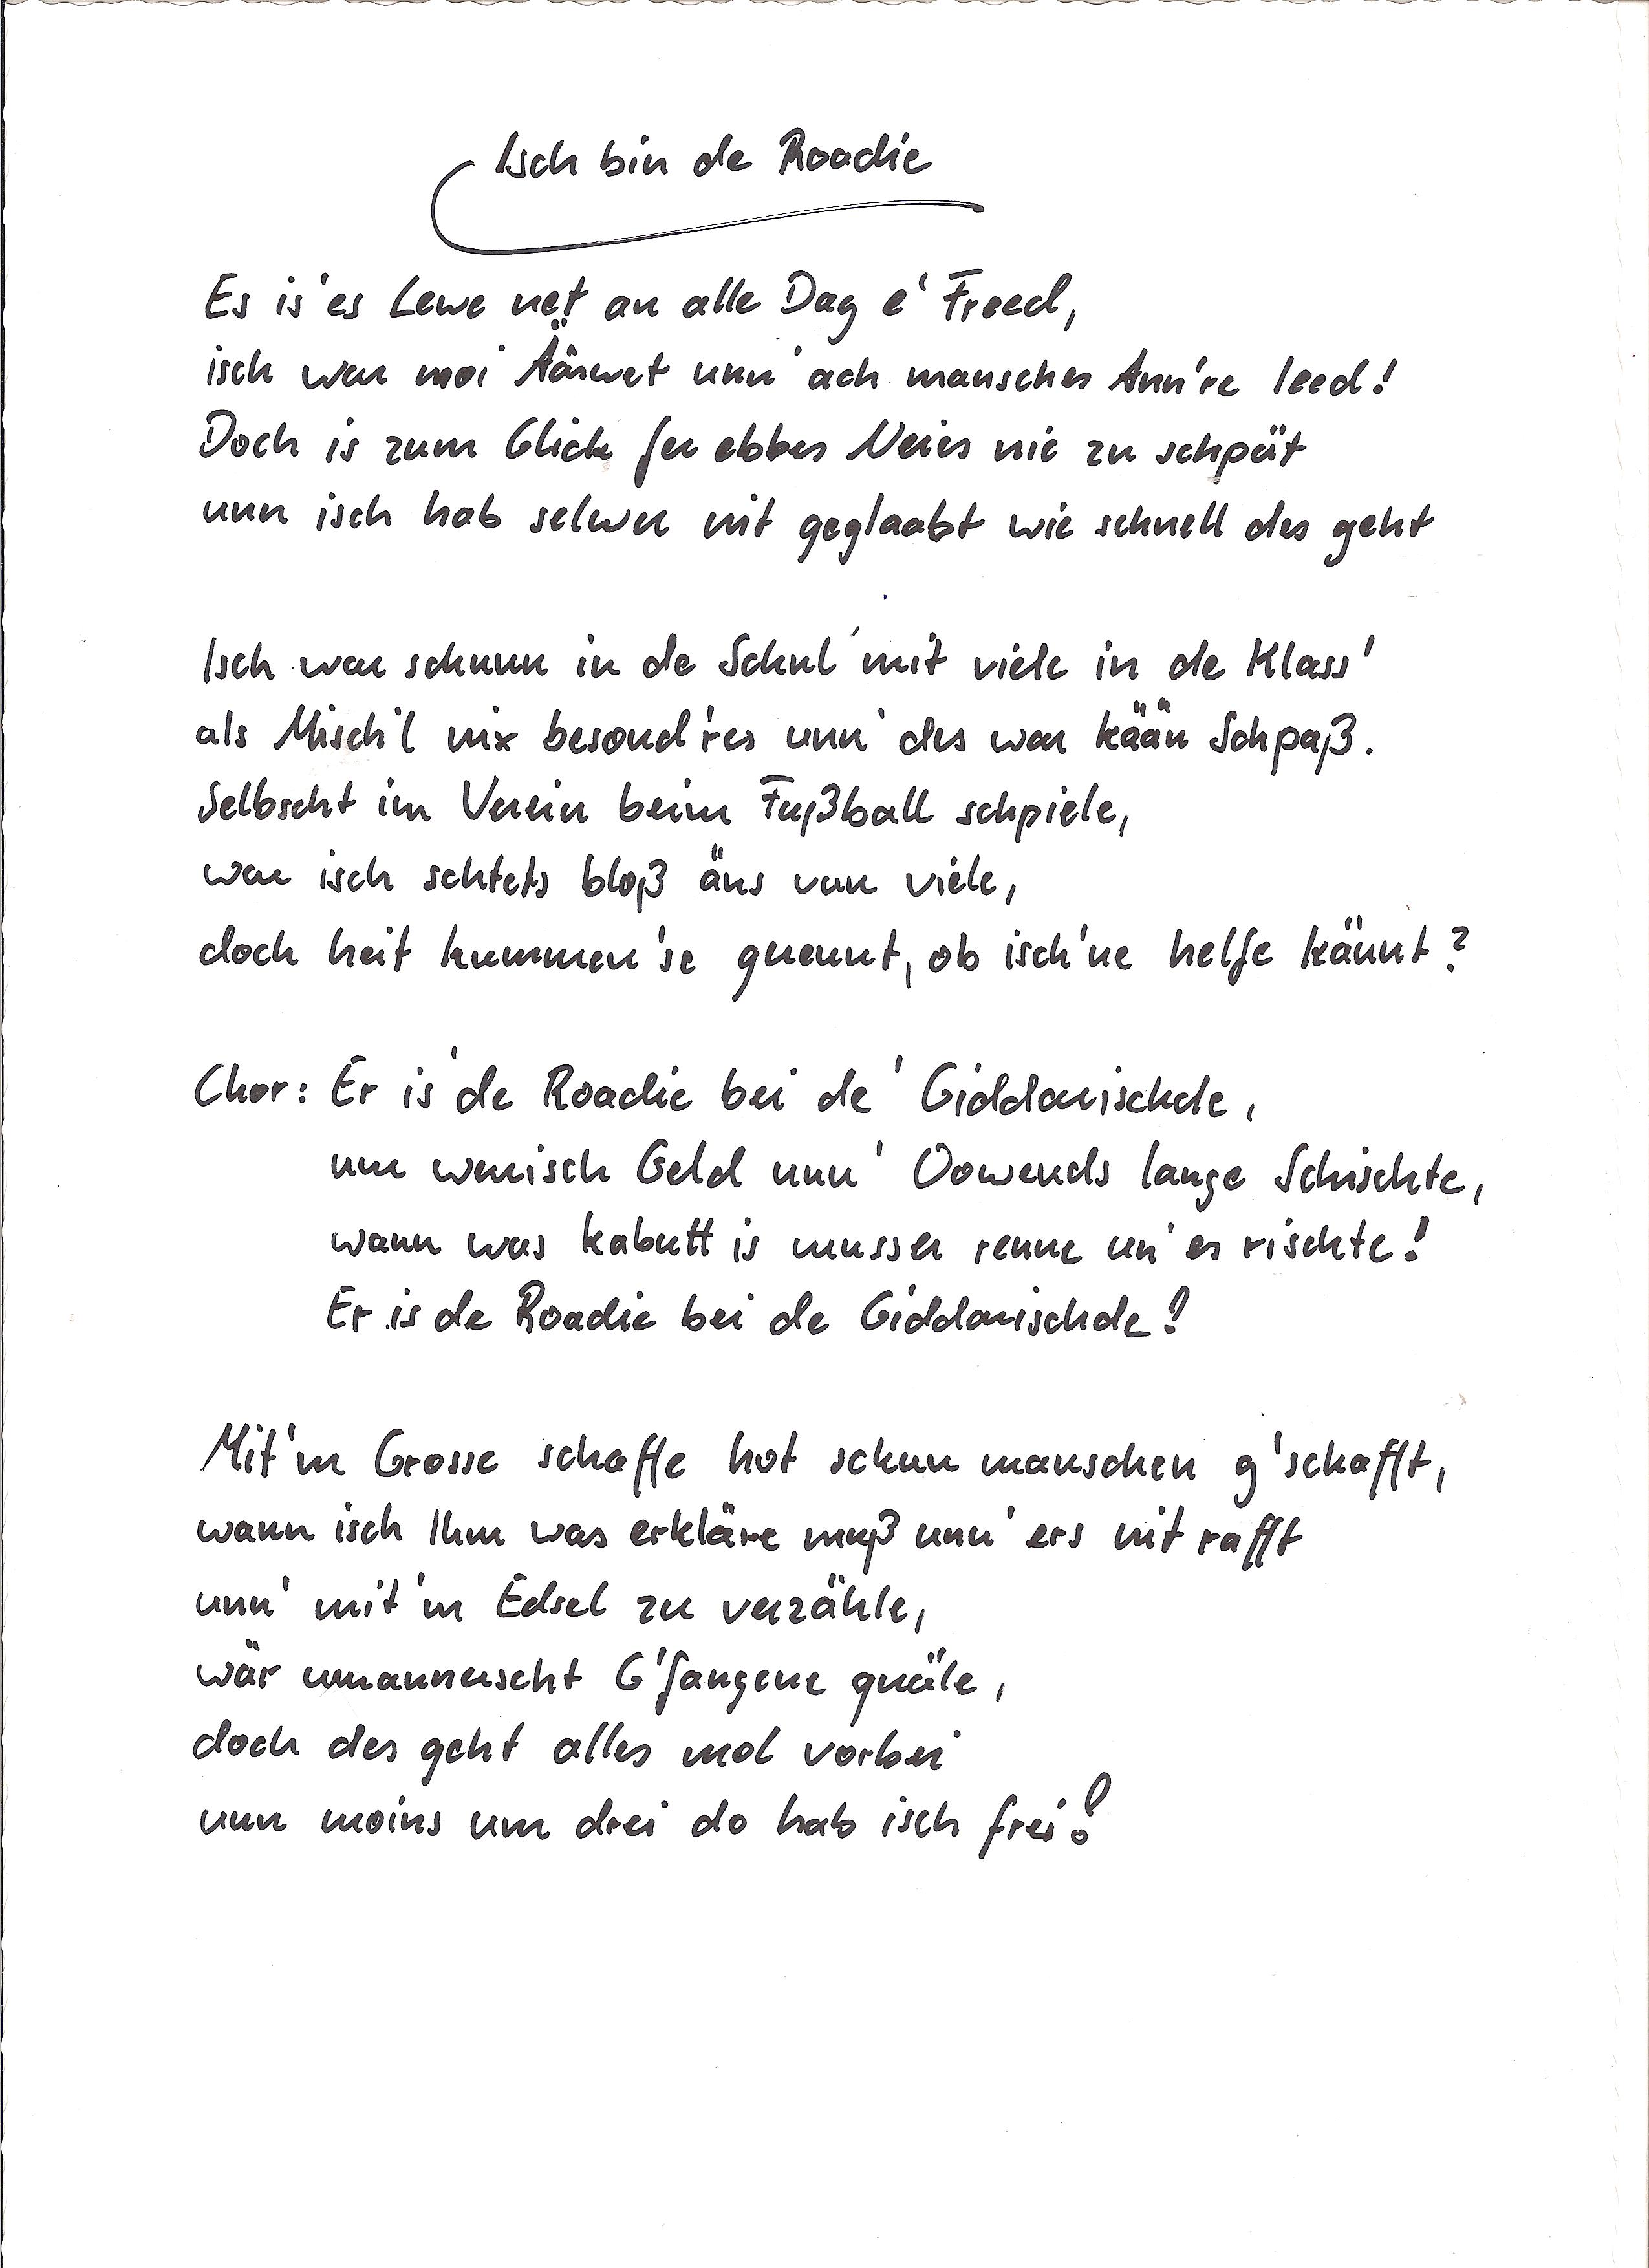 Isch bin de Roadie
Es is' es Lewe net an alle Dag e' Freed,
isch war moi Äärwet unn' ach mansches Ann're leed!
Doch is zum Glick fer ebbes Neies nie zu schpät
unn isch hab selwer nit geglaabt wie schnell des geht
Isch war schunn in de Schul' mit viele in de Klass'
als Misch'l nix besond'res unn' des war kään Schpaß.
Selbscht im Verein beim Fußball schpiele,
war isch schtets bloß äns vun viele,
doch heit kummen'se gerennt, ob isch'ne helfe kännt?
Chor: Er is' de Roadie bei de' Giddarrischde,
um wenisch Geld unn' Oowends lange Schischte,
wann was kabutt is musser renne un' es rischte!
Er is de Roadie bei de Giddarischde!
Mit'm Grosse schaffe hot schun manschen g'schafft,
wann isch Ihm was erkläre muß unn' ers nit rafft
unn' mit'm Edsel zu verzähle,
wär umannerscht G'fangene quäle,
doch des geht alles mol vorbei
unn moins um drei do hab isch frei!